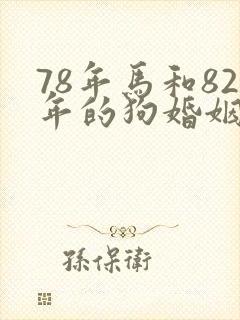 78年馬和82
年的狗婚姻
孫保衛